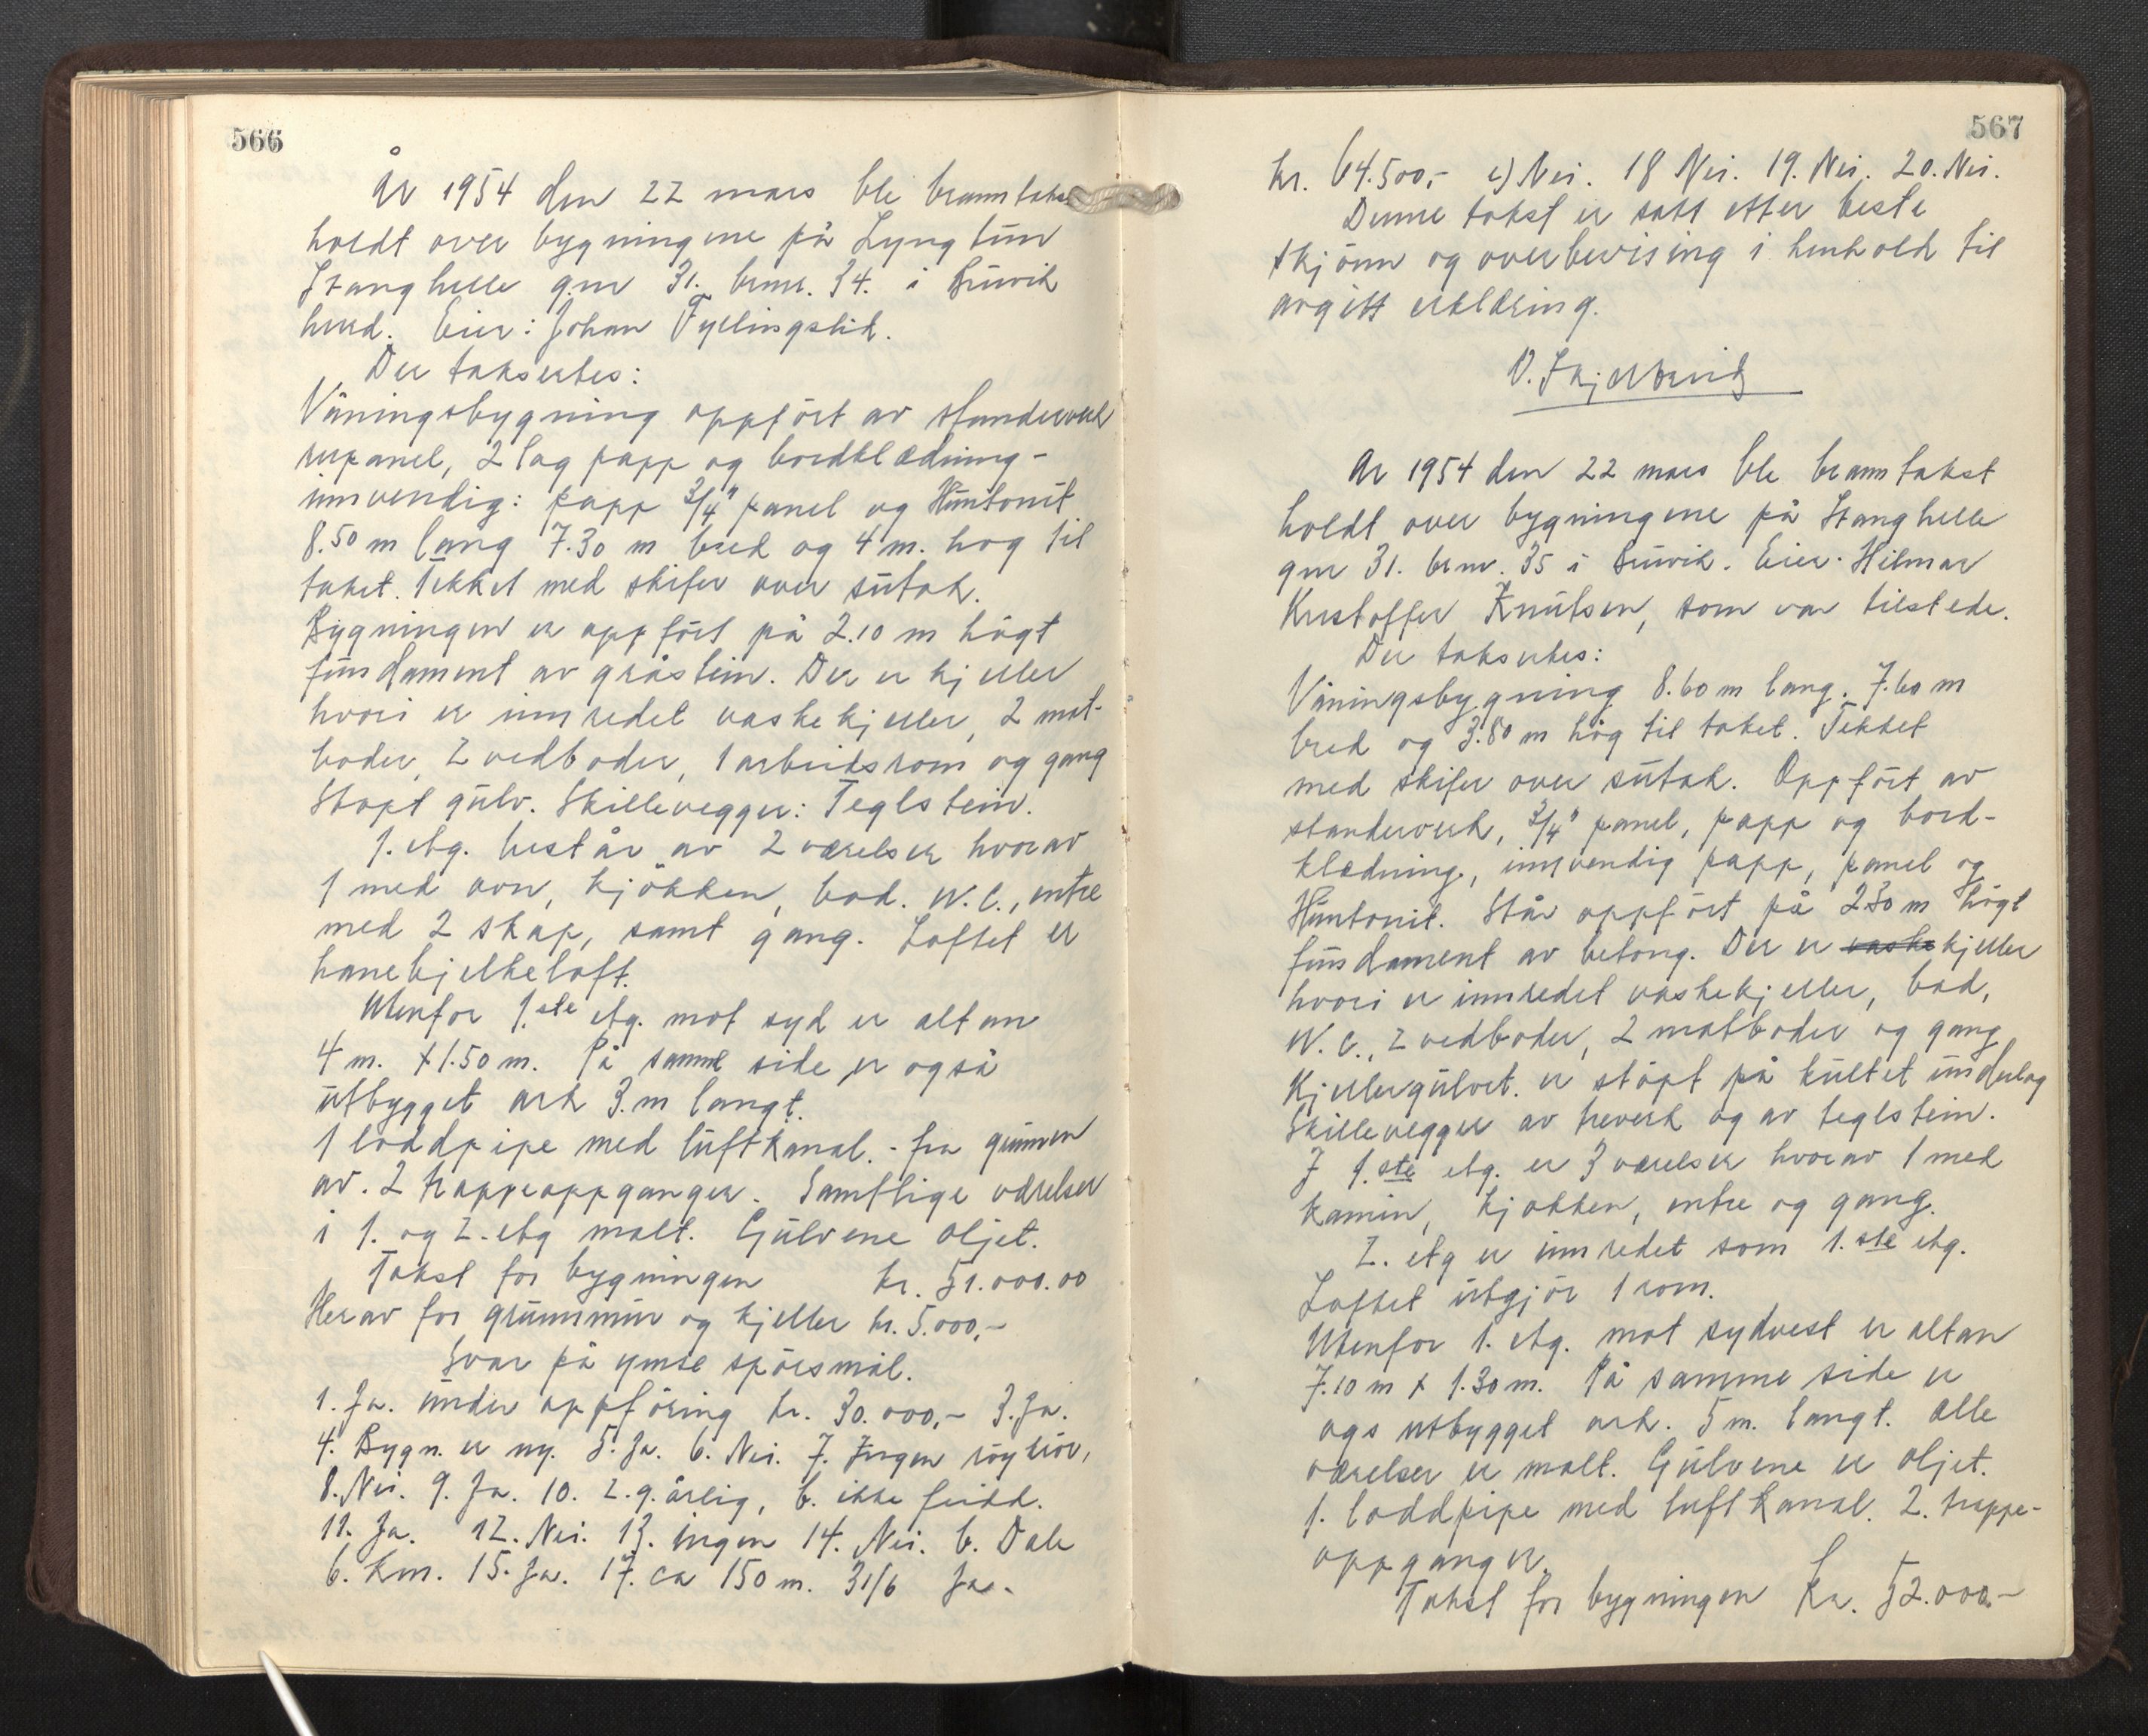 566
År 1954 den 22 mars ble branntakst
holdt over bygningene på Lyngtun
Stanghelle gnr 31. brnr. 34. i Bruvik
herad. Eier: Johan Fyllingslid.
Der takseres:
Våningsbygning oppfört av standerverk
rupanel, 2 lag papp og bordklædning -
innvendig: papp 3/4" panel og Huntonit
8.50 m lang 7.30 m bred og 4 m. høg til
taket. Tekket med skifer over sutak.
Bygningen er oppfört på 2.10 m högt
fundament av gråstein. Der er kjeller
hvori er innredet vaskekjeller, 2 mat-
boder, 2 vedboder, 1 arbeidsrom og gang
Stöpt gulv. Skillevegger: Teglstein.
1. etg. består av 2 værelser hvorav
1 med ovn, kjökken, bad. W.C., entre
med 2 skap, samt gang. Loftet er
hanebjelkeloft.
Utenfor 1.ste etg. mot syd er altan
4 m. x 1.50 m. På samme side er også
utbygget ark 3.m langt.
1 loddpipe med luftkanal. - fra grunnen
av. 2 trappeoppganger. Samtlige værelser
i 1. og 2. etg malt. Gulvene oljet.
Takst for bygningen kr. 51.000.00
Herav for grunnmur og kjeller kr. 5.000,-
Svar på ymse spörsmål.
1. Ja. under oppföring kr. 30.000,- 3. Ja.
4. Bygn. er ny. 5. Ja. 6. Nei. 7. Ingen röykrör,
8. Nei. 9. Ja. 10. 2.g. årlig, b. ikke feidd.
11. Ja. 12. Nei. 13. ingen 14. Nei. b. Dale
6. Km. 15. Ja. 17. ca 150 m. 31/6 Ja.
567
kr. 64.500,- c) Nei. 18 Nei. 19. Nei. 20. Nei.
Denne takst er satt etter beste
skjönn og overbevising i henhold til
avgitt erklæring.
År 1954 den 22 mars ble branntakst
holdt over bygningene på Stanghelle
gnr 31. brnr. 35 i Bruvik. Eier: Hilmar
Kristoffer Knutsen, som var tilstede.
Der takseres:
Våningsbygning 8.60 m lang. 7.60 m
bred og 3.80 m høg til taket. Tekket
med skifer over sutak. Oppfört av
standerverk, 3/4" panel, papp og bord-
klædning, innvendig papp, panel og
Huntonit. Står oppfört på 2.30 m högt
fundament av betong. Der er vaske kjeller
hvori er innredet vaskekjeller, bad,
W.C., 2 vedboder, 2 matboder og gang
Kjellergulvet. er stöpt på kultet underlag
Skillevegger av treverk og av teglstein.
I 1.ste etg. er 3 værelser hvorav 1 med
kamin, kjøkken, entre og gang.
2. etg er innredet som 1.ste etg.
Loftet utgjör 1 rom.
Utenfor 1. etg. mot sydvest er altan
7.10 m x 1.30 m. På samme side er
ogs utbygget ark. 5 m. langt. Alle
værelser er malt. Gulvene er oljet.
1. loddpipe med luftkanal. 2. trappe-
oppganger.
Takst for bygningen kr. 52.000.-